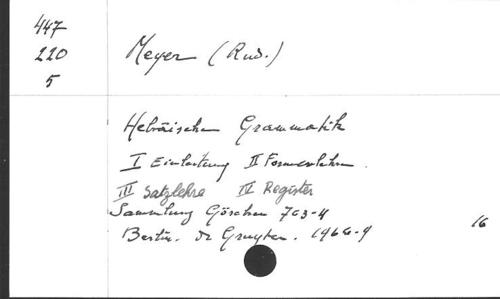 447
220
5
Meyer (Rud.)
Hebräische Grammatik
I Einleitung II Formenlehre.
III Satzlehre IV Register
Sammlung Göschen 763-4
Berlin. de Gruyter. 1966-9
16